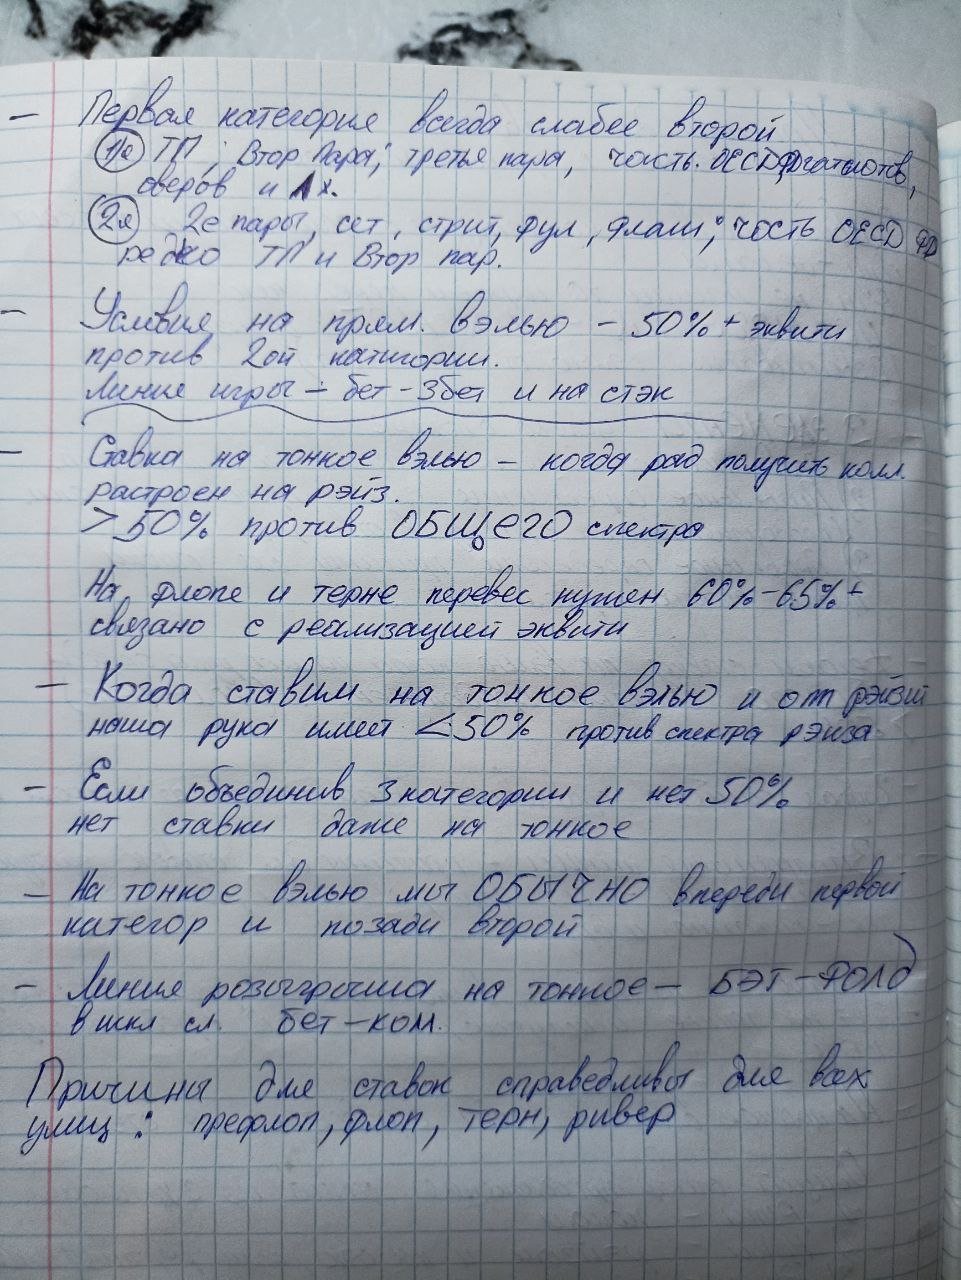 - Первая категория всегда слабее второй
1я ТП, Втор пара, третья пара, часть. OESD, FD гатшотов,
оверов и Ах.
2я 2е пары, сет, стрит, фул, флаш, часть OESD FD
редко ТП и Втор пар.
- Условия на прям. вэлью - 50%+ эквити
против 2ой катигории.
Линия игры - бет-3бет и на стэк
- Ставка на тонкое вэлью - когда рад получить колл.
растроен на рэйз.
>50% против ОБЩЕГО спектра
На флопе и терне перевес нужен 60%-65%+
связано с реализацией эквити
- Когда ставим на тонкое вэлью и опп рэйзит
наша рука имеет <50% против спектра рэйза
- Если объединив 2 категории и нет 50%
нет ставки даже на тонкое
- На тонкое вэлью мы ОБЫЧНО впереди первой
категор и позади второй
- Линия розыгрыша на тонкое - БЭТ-ФОЛД
в искл сл. бет-кол.
Причины для ставок справедливы для всех
улиц: префлоп, флоп, терн, ривер